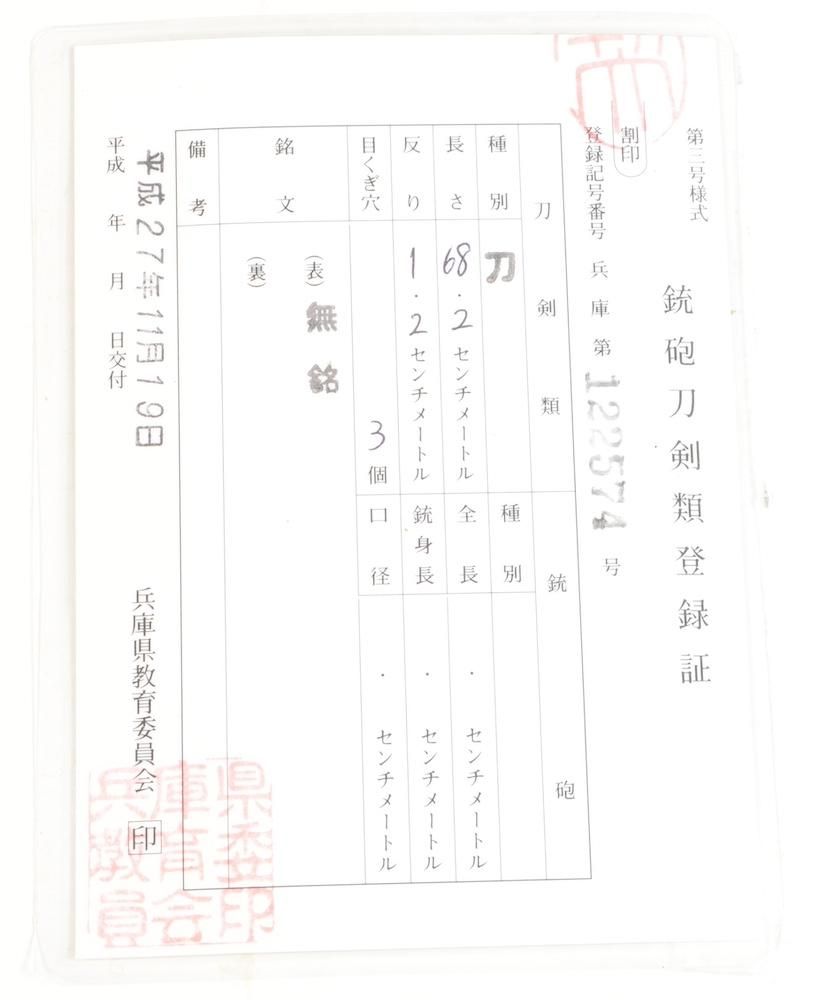 第三号様式
銃砲刀剣類登録証
割印
登録記号番号 兵庫第122574号
刀剣類
種別 刀
長さ 68.2センチメートル
反り 1.2センチメートル
目くぎ穴 3個
銘文
(表) 無銘
(裏)
備考
銃砲
種別
全長 ・センチメートル
銃身長 ・センチメートル
口径 ・センチメートル
平成27年11月19日
平成 年 月 日交付
兵庫県教育委員会 印
県委印
庫育会
兵教員